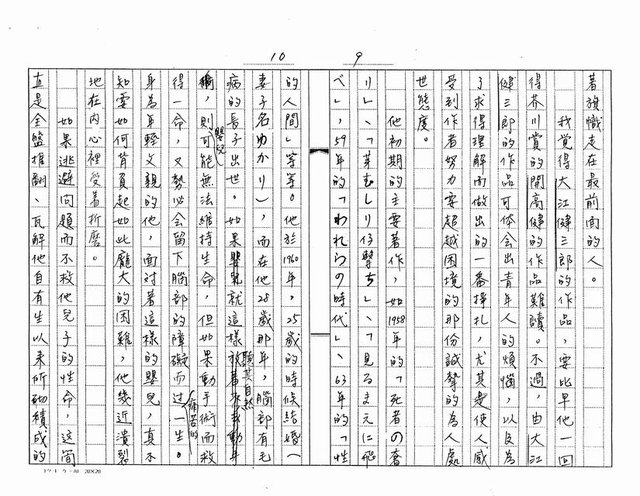 10
9
著旗幟走在最前面的人。
我覺得大江健三郎的作品,要比早他一回
得芥川賞的開高健的作品難讀。不過,由大江
健三郎的作品可体會出青年人的煩惱,以及為
了求得理解而做出的一番掙扎,尤其是使人感
受到作者努力要超越困境的那份誠摯的為人處
世態度。
他初期的主要著作,如1958年的「死者の奢
り」、「芽むしり仔撃ち」、「見るまえに飛
べ」,59年的「われらの時代」、63年的「性
的人間」等等。他於1960年,25歲的時候結婚(
妻子名ゆかり),而在他28歲那年,腦部有毛
病的長子出世。如果嬰兒就這樣放著聽其自然
,則嬰兒可能無法維持生命,但如果動手術而救
得一命,又勢必會留下腦部的障礙而過痛苦的一生。
身為年輕父親的他,面對著這樣的嬰兒,真不
知要如何背負起如此龐大的困難,他幾近潰裂
地在內心裡受着折磨。
如果逃避問題而不救他兒子的性命,這簡
直是全盤推翻、瓦解他自有生以來所砌積成的
20×20